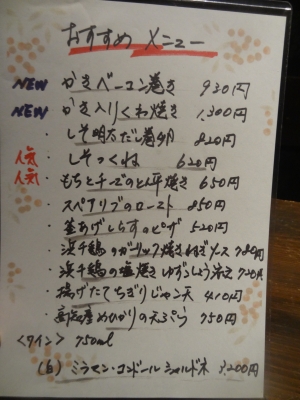 おすすめメニュー
NEW かきベーコン巻き 930円
NEW かき入りくわ焼き 1,300円
・しそ明太だし巻卵 820円
人気 しそつくね 620円
人気 もちとチーズのとん平焼き 650円
・スペアリブのロースト 850円
・釜あげしらすのピザ 520円
・浜千鶏のガーリック焼きねぎソース 780円
・浜千鶏の塩焼きゆずこしょう添え 720円
・揚げたてちぎりじゃこ天 410円
・めひかりの天ぷら 750円
<ワイン> 750ml
(白) ミラマン・コンドール シャルドネ 3,200円